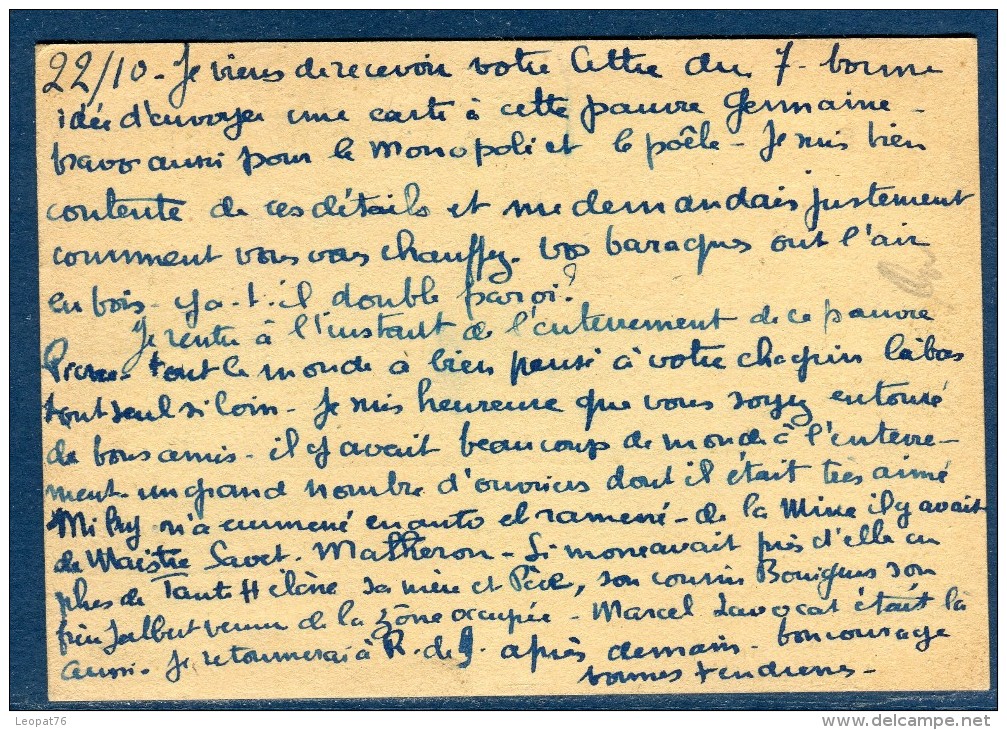 22/10 - Je viens de recevoir votre lettre du 7 - bonne
idée d'envoyer une carte à cette pauvre Germaine -
bravo aussi pour le Monopoli et le poêle - Je suis bien
contente de ces détails et me demandais justement
comment vous vous chauffez. Vos baraques ont l'air
en bois - y a-t-il double paroi?
Je rentre à l'instant de l'enterrement de ce pauvre
Pierre - tout le monde a bien pensé à votre chagrin là bas
tout seul si loin - Je suis heureuse que vous soyez entouré
de bons amis - il y avait beaucoup de monde à l'enterre-
ment - un grand nombre d'ouvriers dont il était très aimé
m'a emmené en auto et ramené - de la Mine il y avait
de Maistre Savet. Matheron - Simone avait près d'elle en
plus de Tante Hélène sa mère et Père, son cousin Bouigues son
frère Jalbert venu de la zône occupée - Marcel Lavocat était là
aussi - Je retournerai à R. de G. après demain - bon courage
bonnes tendresses -
Leopat76
www.delcampe.net